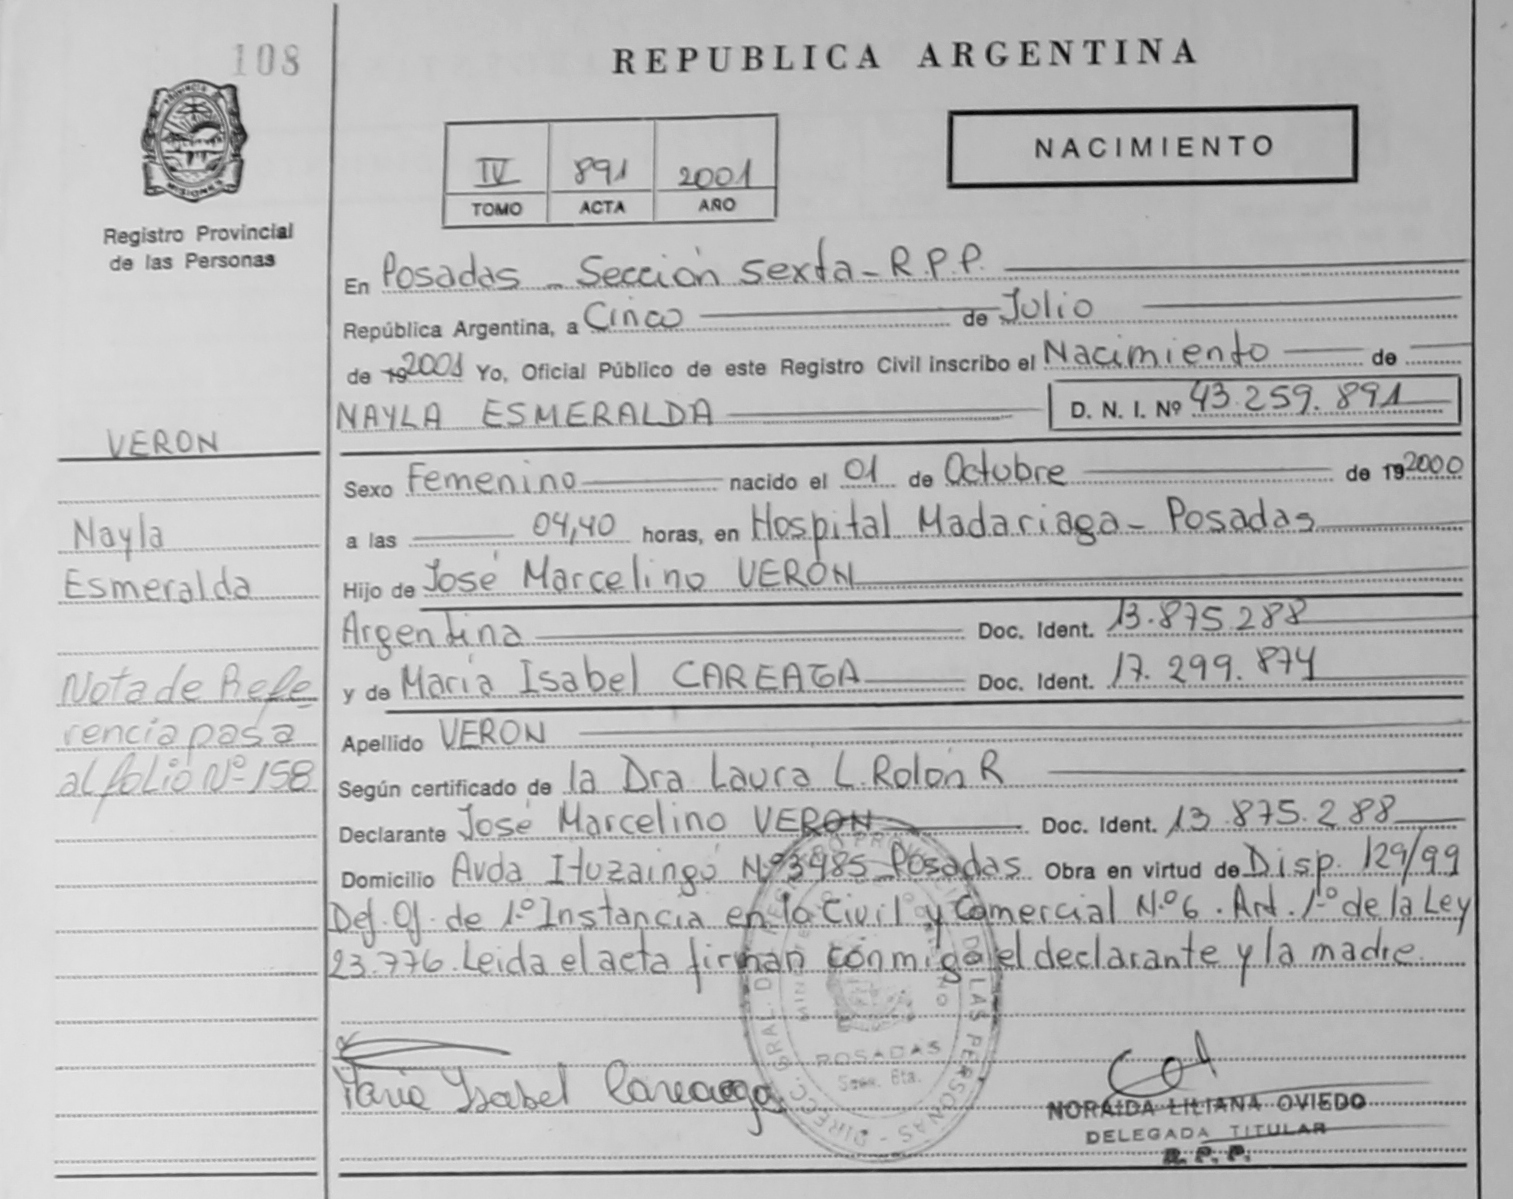 108
REPUBLICA ARGENTINA
PROVINCIA DE
MISIONES
Registro Provincial
de las Personas
IV 891 2001
TOMO ACTA AÑO
NACIMIENTO
En Posadas - Sección Sexta - R.P.P.
República Argentina, a Cinco de Julio
de 19 2001 Yo, Oficial Público de este Registro Civil inscribo el Nacimiento de
NAYLA ESMERALDA D. N. I. Nº 43.259.891
VERON
Sexo Femenino nacido el 01 de Octubre de 19 2000
Nayla
a las 04,40 horas, en Hospital Madariaga - Posadas
Esmeralda
Hijo de José Marcelino VERÓN
Argentina Doc. Ident. 13.875.288
Nota de Refe-
y de María Isabel CAREAGA Doc. Ident. 17.299.874
rencia pasa
Apellido VERON
al folio Nº 158
Según certificado de la Dra Laura L. Rolón R
Declarante José Marcelino VERON Doc. Ident. 13.875.288
Domicilio Avda Ituzaingó Nº 3485 Posadas Obra en virtud de Disp. 129/99
Def. Of. de 1º Instancia en lo Civil y Comercial Nº 6. Art. 1º de la Ley
23.776. Leida el acta firman conmigo el declarante y la madre.
DE LAS PERSONAS - DIRECC. GRAL.
POSADAS
Secc. 6ta.
Maria Ysabel Careaga
NORAIDA LILIANA OVIEDO
DELEGADA TITULAR
R. P. P.